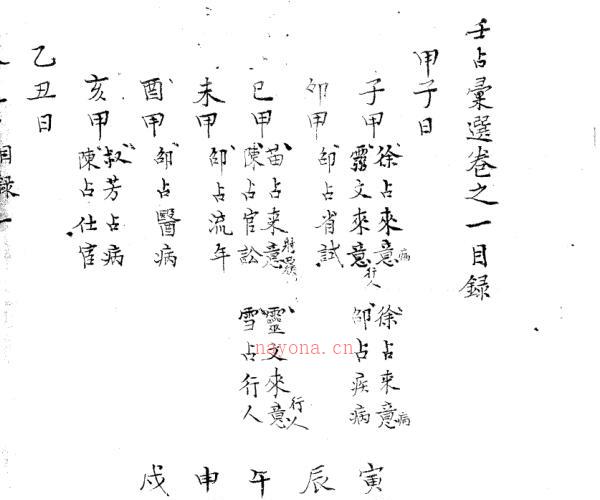 壬占彙選卷之一目録
甲子日
子甲 徐占來意病 徐占來意病 寅
靈文來意行人 邵占疾病
卯甲 邵占省試 辰
巳甲 苗占来意射覆 靈文來意行人 午
陳占官訟 雪占行人
未甲 邵占流年 申
酉甲 邵占醫病 戌
亥甲 叔芳占病
陳占仕宦
乙丑日
目録一
nayona.cn